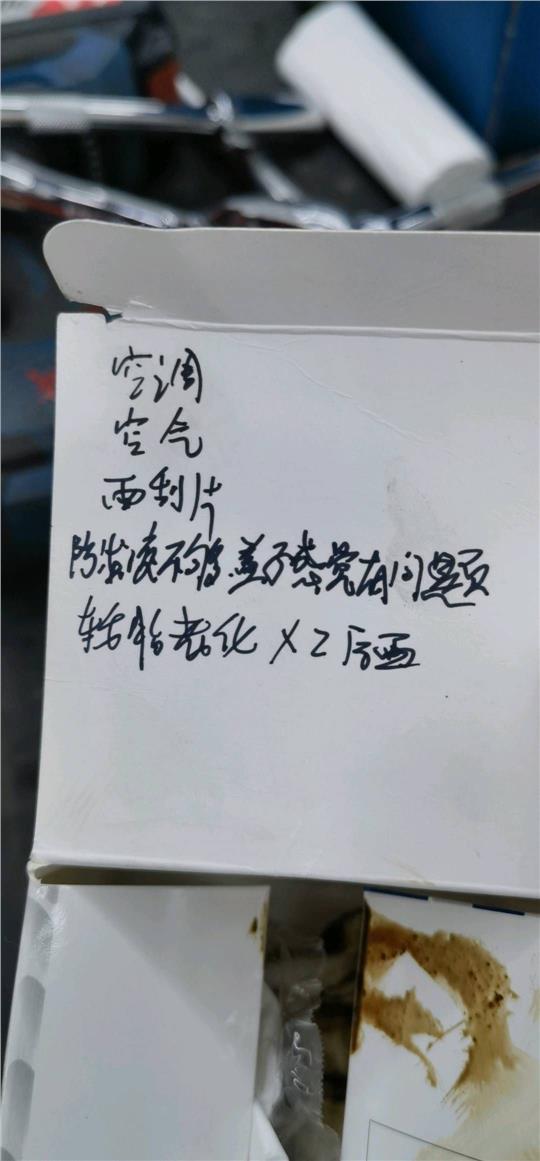 空调
空气
雨刮片
防冻液不够.盖子感觉有问题
轮胎老化 X2后面